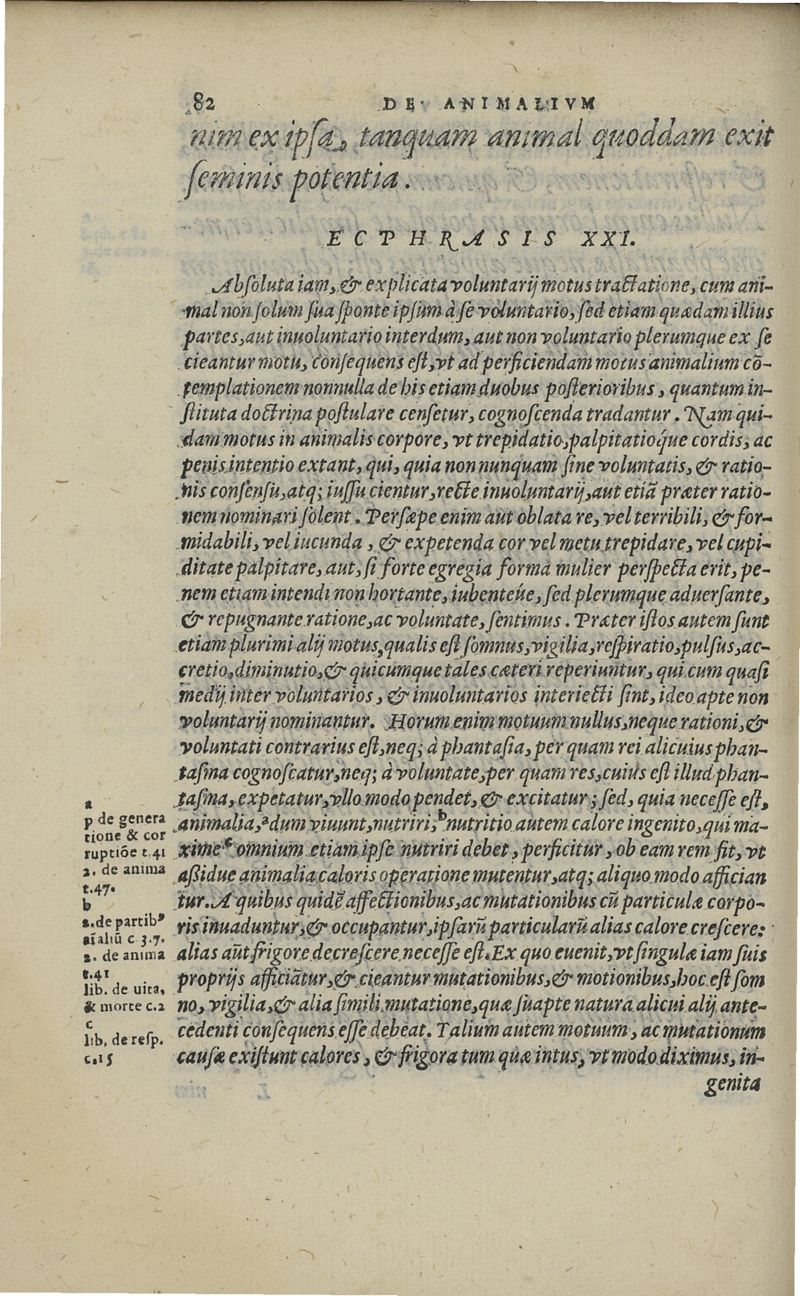 82 DE ANIMALIVM
nim ex ipſa, tanquam animal quoddam exit
ſeminis potentia.
ECPHRASIS XXI.
Abſoluta iam, & explicata voluntarij motus tractatione, cum ani-
mal non ſolum ſua ſponte ipſum à ſe voluntario, ſed etiam quædam illius
partes, aut inuoluntario interdum, aut non voluntario plerumque ex ſe
cieantur motu, conſequens eſt, vt ad perficiendam motus animalium cō-
templationem nonnulla de his etiam duobus poſterioribus, quantum in-
ſtituta doctrina poſtulare cenſetur, cognoſcenda tradantur. Nam qui-
dam motus in animalis corpore, vt trepidatio, palpitatioque cordis, ac
penis intentio extant, qui, quia non nunquam ſine voluntatis, & ratio-
nis conſenſu, atq; iuſſu cientur, recte inuoluntarij, aut etiā præter ratio-
nem nominari ſolent. Perſæpe enim aut oblata re, vel terribili, & for-
midabili, vel iucunda, & expetenda cor vel metu trepidare, vel cupi-
ditate palpitare, aut, ſi forte egregia forma mulier perſpecta erit, pe-
nem etiam intendi non hortante, iubenteúe, ſed plerumque aduerſante,
& repugnante ratione, ac voluntate, ſentimus. Præter iſtos autem ſunt
etiam plurimi alij motus, qualis eſt ſomnus, vigilia, reſpiratio, pulſus, ac-
cretio, diminutio, & quicumque tales cæteri reperiuntur, qui cum quaſi
medij inter voluntarios, & inuoluntarios interiecti ſint, ideo apte non
voluntarij nominantur. Horum enim motuum nullus, neque rationi, &
voluntati contrarius eſt, neq; à phantaſia, per quam rei alicuius phan-
taſma cognoſcatur, neq; à voluntate, per quam res, cuius eſt illud phan-
taſma, expetatur, vllo modo pendet, & excitatur; ſed, quia neceſſe eſt,
animalia, a dum viuunt, nutriri, b nutritio autem calore ingenito, qui ma-
xime c omnium etiam ipſe nutriri debet, perficitur, ob eam rem fit, vt
aſsidue animalia caloris operatione mutentur, atq; aliquo modo affician
tur. A quibus quidē affectionibus, ac mutationibus cū particulæ corpo-
ris inuaduntur, & occupantur, ipſarū particularū alias calore creſcere:
alias aūt frigore decreſcere neceſſe eſt. Ex quo euenit, vt ſingulæ iam ſuis
proprijs afficiātur, & cieantur mutationibus, & motionibus, hoc eſt ſom
no, vigilia, & alia ſimili mutatione, quæ ſuapte natura alicui alij ante-
cedenti conſequens eſſe debeat. Talium autem motuum, ac mutationum
cauſæ exiſtunt calores, & frigora tum quæ intus, vt modo diximus, in-
genita
a
p de genera
tione & cor
ruptiōe t. 41
2. de anima
t. 47.
b
2. de partib⁹
aīaliū c 3. 7.
2. de anima
t. 41
lib. de uita,
& morte c. 2
c
lib. de reſp.
c. 15